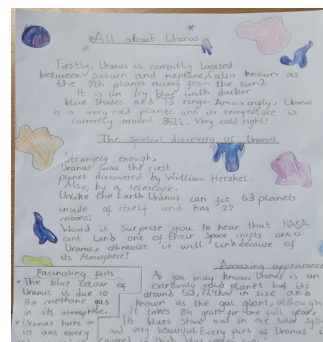 All about Uranus
Firstly, Uranus is currently located
between Saturn and neptune, (also known as
the 7th planet away from the sun).
It is an icy blue with darker
blue shades and 13 rings. Amusingly, Uranus
is a very cold planet and its temperature is
currently around Very cold right?
The special discovery of Uranus
Strangely enough,
Uranus was the first
planet discovered by William Hershel.
Also, by a telescope.
Unlike the Earth Uranus can fit 63 planets
inside of itself and has 27
moons!
Would it surprise you to hear that NASA
cant land one of their space crafts onto
Uranus, otherwise it will sink because of
its Atmosphere?
Facinating facts
• The blue colour of
Uranus is due to
the methane gas
in its atmosphere.
• Uranus turns on
its axis every
Amazing appearance
As you may know Uranus is an
extreamly cold planet but its
around 50,724km in size and
known as the gas planet, although
It takes 84 years for one full year,
Its blues stand out in the solar System
and very beautiful. Every part of Uranus
thick